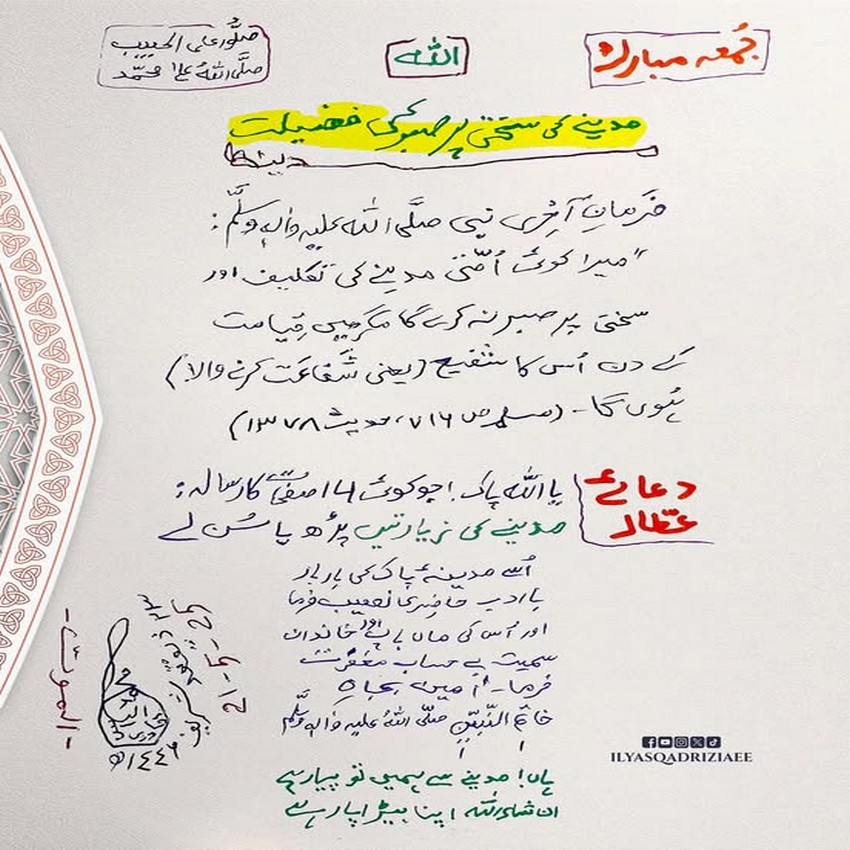 جُمعہ مبارک
اللہ
صلُّوا علی الحبیب
صلَّی اللہُ علیٰ محمّد
مدینے کی سختی پر صبر کی فضیلت
فرمانِ آخری نبی صلَّی اللہ علیہ واٰلہٖ وسلَّم:
"میرا کوئی اُمّتی مدینے کی تکلیف اور
سختی پر صبر نہ کرے گا مگر میں قِیامت
کے دن اُس کا شفیع (یعنی شَفاعت کرنے والا)
ہُوں گا۔ (مسلم ص ۷۱۶، حدیث ۱۳۷۸)
دعائے
عطّار
یا اللہ پاک! جو کوئی 14 صفحے کا رسالہ:
مدینے کی زیارتیں پڑھ یا سُن لے
اُسے مدینۂ پاک کی بار بار
با ادب حاضری نصیب فرما
اور اُس کی ماں باپ اور خاندان
سمیت بے حساب مغفرت
فرما۔ اٰمین بجاہِ
خاتمِ النَّبِیّٖن صلَّی اللہُ علیہ واٰلہٖ وسلَّم
ہاں! مدینے سے ہمیں تو پیار ہے
ان شاءَ اللہ اپنا بیڑا پار ہے
الموت
۱۴۴۶ھ
ILYASQADRIZIAEE